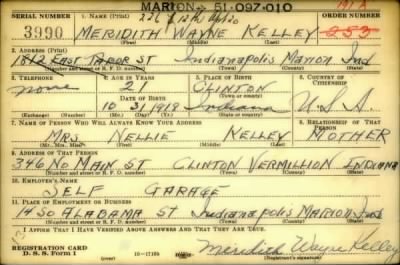 MARION 51-097-010
SERIAL NUMBER 1. NAME (Print) 191 A ORDER NUMBER
3990 MERIDITH WAYNE KELLEY 253
(First) (Middle) (Last)
2. ADDRESS (Print)
1812 EAST TABOR ST Indianapolis Marion Ind
(Number and street or R. F. D. number) (Town) (County) (State)
3. TELEPHONE 4. AGE IN YEARS 5. PLACE OF BIRTH 6. COUNTRY OF CITIZENSHIP
none 21 CLINTON
DATE OF BIRTH (Town or county)
10 31 1919 Indiana U.S.A.
(Exchange) (Number) (Mo.) (Day) (Yr.) (State or country)
7. NAME OF PERSON WHO WILL ALWAYS KNOW YOUR ADDRESS 8. RELATIONSHIP OF THAT PERSON
MRS. NELLIE KELLEY MOTHER
(Mr., Mrs., Miss) (First) (Middle) (Last)
9. ADDRESS OF THAT PERSON
346 NO MAIN ST CLINTON VERMILLION INDIANA
(Number and street or R. F. D. number) (Town) (County) (State)
10. EMPLOYER'S NAME
SELF GARAGE
11. PLACE OF EMPLOYMENT OR BUSINESS
1450 ALABAMA ST Indianapolis MARION Ind
(Number and street or R. F. D. number) (Town) (County) (State)
I AFFIRM THAT I HAVE VERIFIED ABOVE ANSWERS AND THAT THEY ARE TRUE.
REGISTRATION CARD
D. S. S. Form 1 Meridith Wayne Kelley
(Registrant's signature)